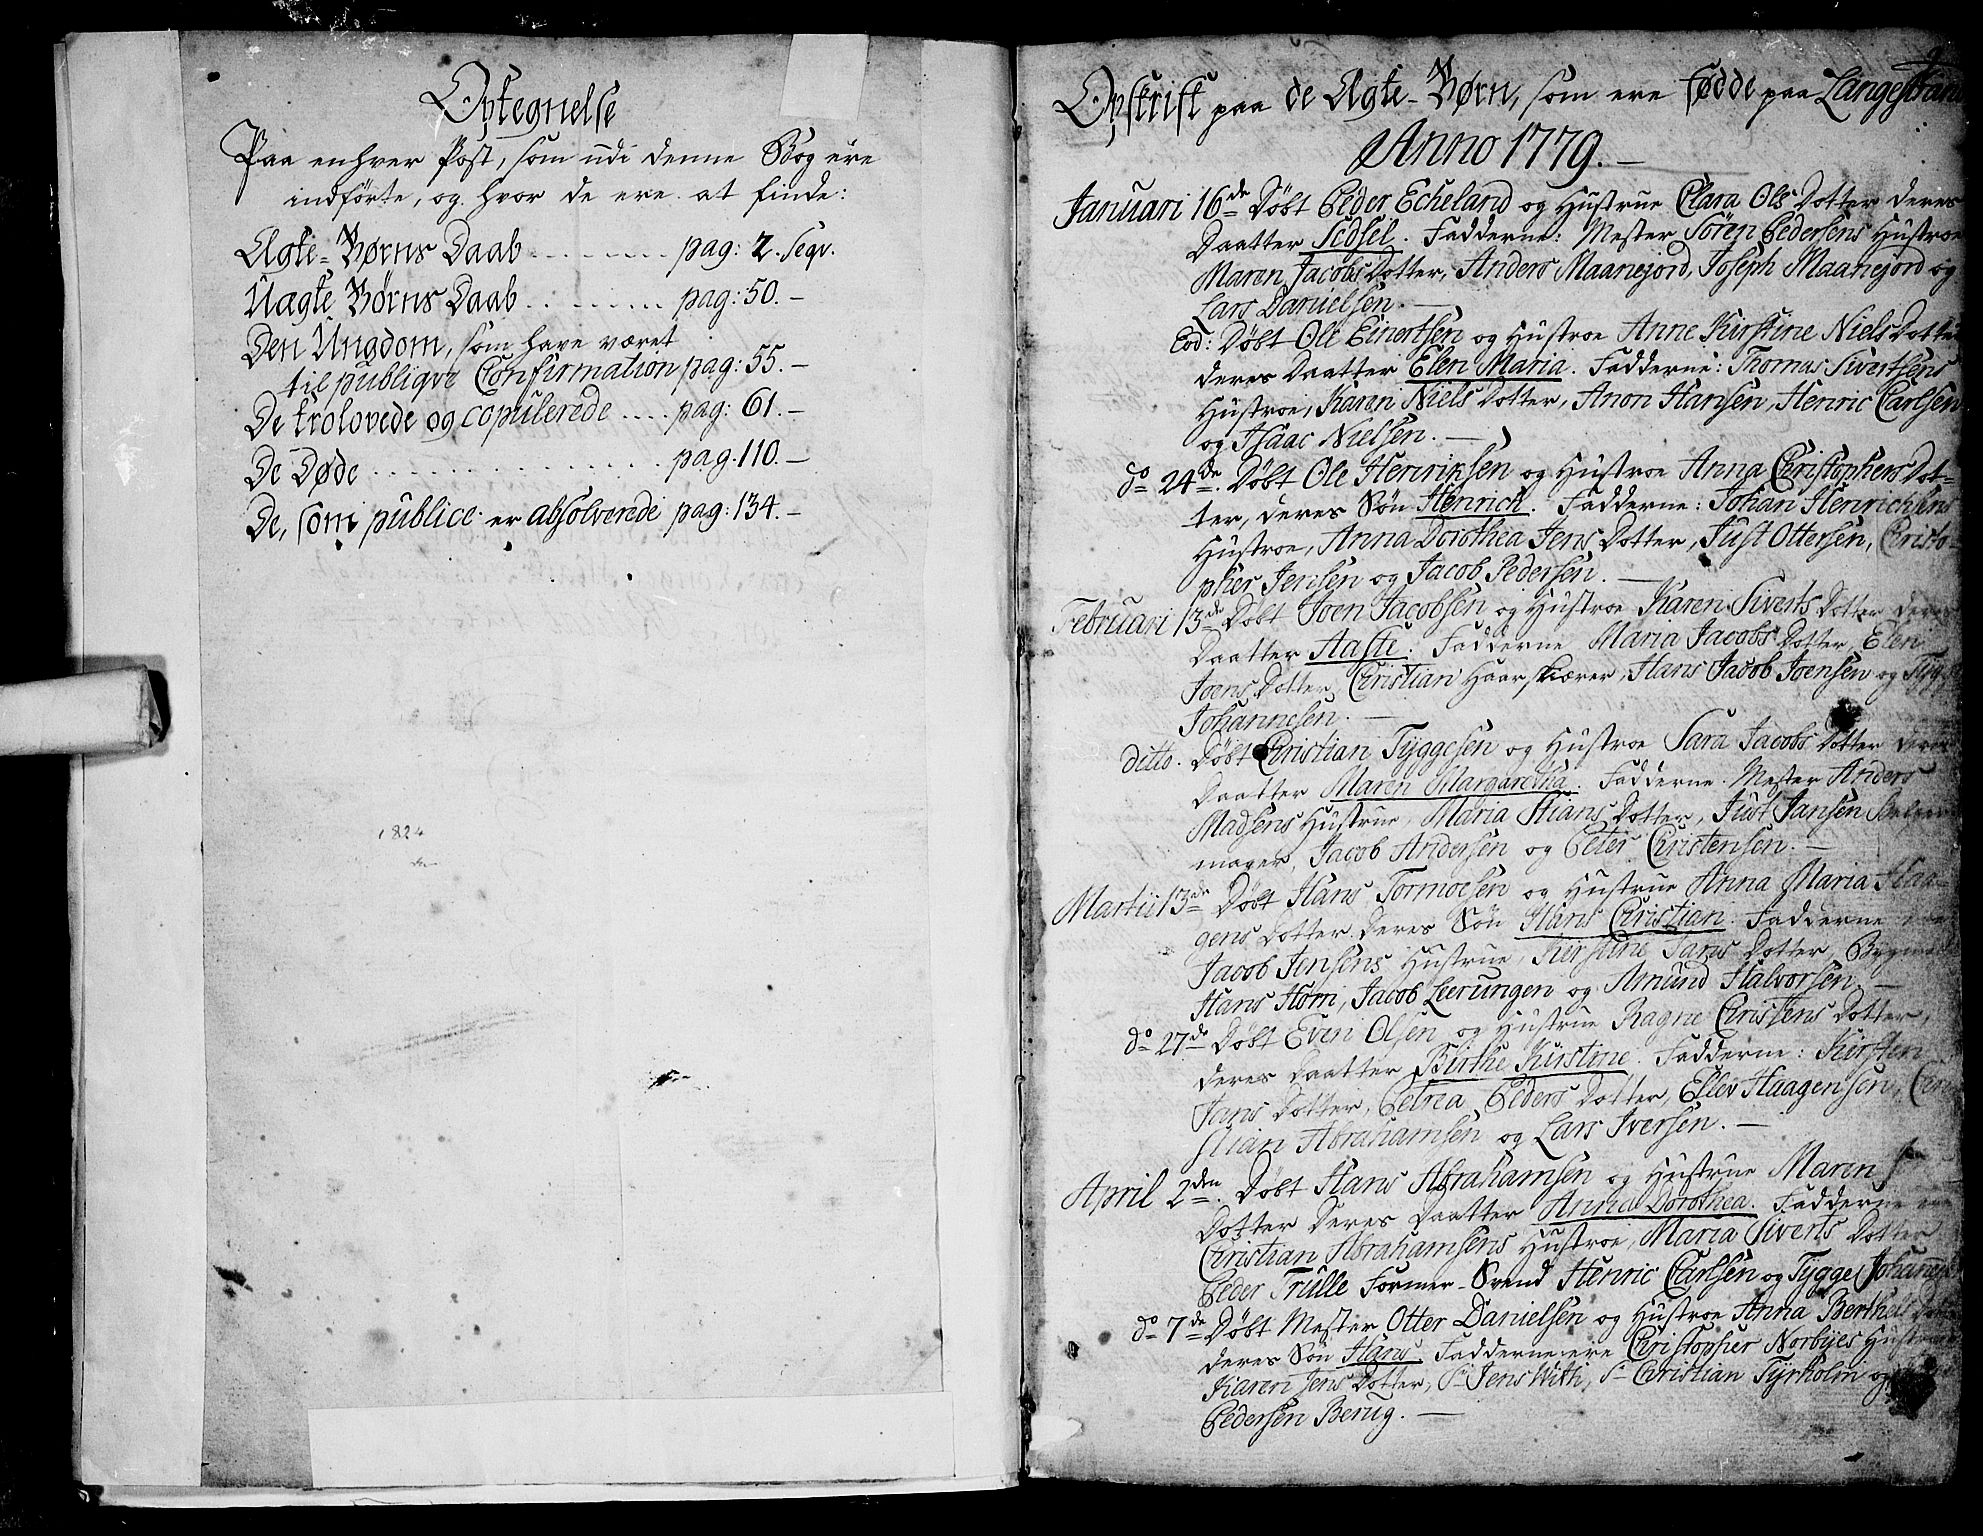 Optegnelse
Paa enhver Post, som udi denne Bog ere
indførte, og hvor de ere at finde:
Ægte=Børns Daab ........ pag: 2. seqv.
Uægte Børns Daab ........ pag: 50. –
Den Ungdom, som have været
til publique Confirmation pag: 55. –
De trolovede og copulerede .... pag: 61. –
De Døde .............. pag. 110. –
De, som publice er absolverede pag: 134. –
1824
Opskrift paa de Ægte-Børn, som ere fødde paa Langestran
Anno 1779. –
Januari 16de Døbt Peder Echeland og Hustrue Clara Ols Dotter deres
Daatter Sidsel. Fadderne: Mester Sören Pedersens Hustroe
Maren Jacobs Dotter, Anders Maanejord, Joseph Maanejord og
Lars Danielsen. –
Eod: Døbt Ole Einertsen og Hustroe Anne Kirstine Niels Dotter
deres Daatter Elen Maria. Fadderne: Thomas Sivertsens
Hustroe, Karen Niels Dotter, Anon Hansen, Henric Carlsen
og Isaac Nielsen. –
do 24de. Døbt Ole Henriksen og Hustroe Anna Christophers Dot=
ter, deres Søn Henrich. Fadderne: Johan Henrichsens
Hustroe, Anna Dorothea Jens Dotter, Just Ottersen, Christo=
pher Jensen og Jacob Pedersen. –
Februari 13de Døbt Joen Jacobsen og Hustroe Karen Siverts Dotter deres
Daatter Aaste. Fadderne Maria Jacobs Dotter, Elen
Joens Dotter, Christian Haarskiærer, Hans Jacob Joensen og Tygge
Johannesen. –
ditto. Døbt Christian Tyggesen og Hustroe Sara Jacobs Dotter deres
Daatter Maren Margaretha. Fadderne. Mester Anders
Madsens Hustrue, Maria Stians Dotter, Just Jansen
mager, Jacob Andersen og Peter Christensen. –
Martii 13de Døbt Hans Tormoesen og Hustrue Anna Maria Haa=
gens Dotter deres Søn Hans Christian. Fadderne
Jacob Jensens Hustrue, Kirstine Jans Dotter,
Hans Horn, Jacob Leerungen og Amund Halvorsen. –
do 27de Døbt Even Olsen og Hustrue Ragne Christens Dotter,
deres Daatter Birthe Kirstine. Fadderne: Kirsten
Jans Dotter, Petrea Peders Dotter, Ellev Haagensen, Chri
stian Abrahamsen og Lars Iversen. –
April 2den. Døbt Hans Abrahamsen og Hustrue Maren
Dotter deres Daatter Anna Dorothea. Fadderne ere
Christian Abrahamsens Hustroe, Maria Siverts Dotter
Peder Trulle Former-Svend Henric Carlsen og Tygge Johannes
do 7de Døbt Mester Otter Danielsen og Hustroe Anna Berthels Dotter
deres Søn Hans. Fadderne ere Christopher Norbyes Hustroe
Karen Jens Dotter, Sr Jens With, Sr Christian Tyrholm og
Pedersen Berug. –